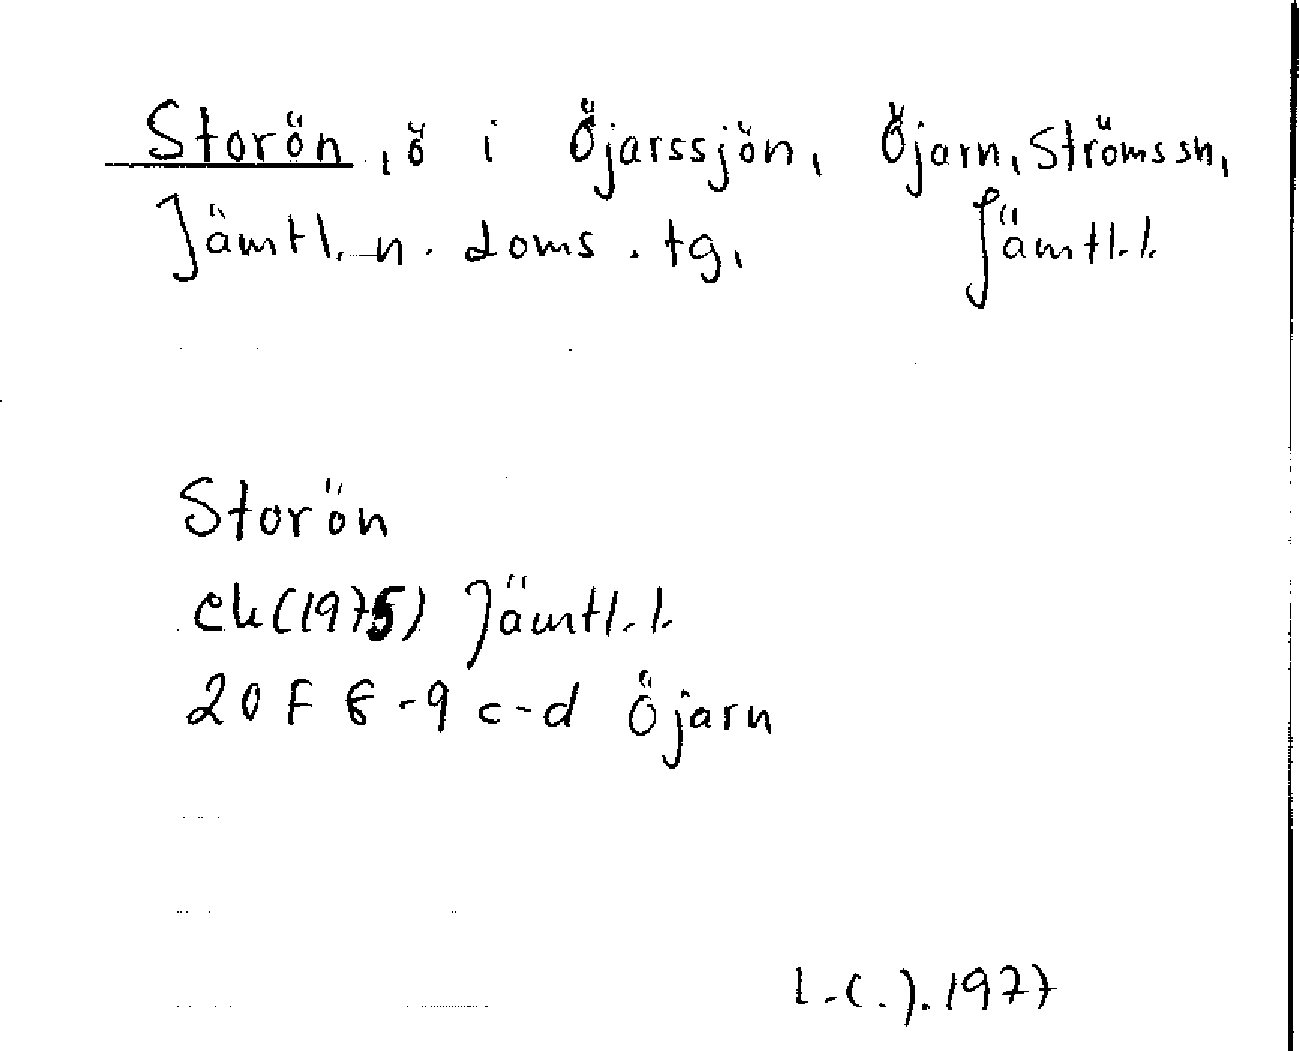 Storön, ö i Öjarssjön, Öjarn, Ströms sn,
Jämtl. n. doms. tg, Jämtl. l.
Storön
ek (1975) Jämtl. l.
20 F 8-9 c-d Öjarn
L.C.J. 1977